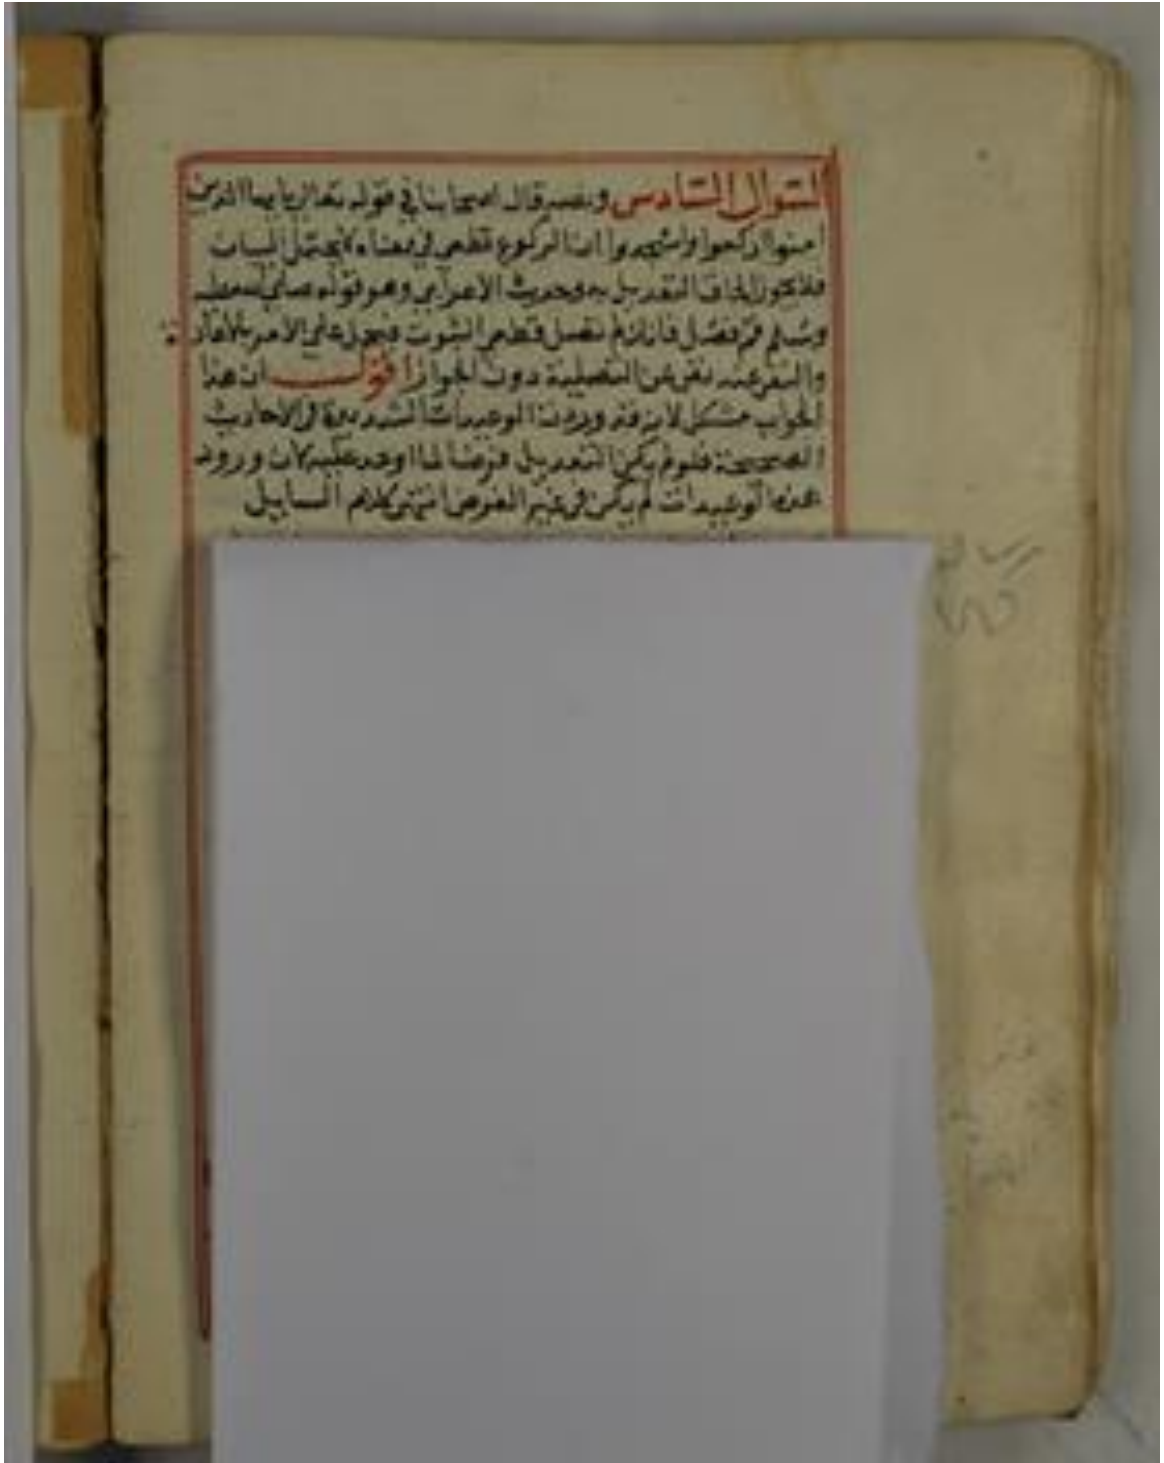 السؤال السادس ونصه قال اصحابنا في قوله تعالى يا ايها الذين
امنوا اركعوا واسجدوا ان الركوع قطعي في معناه لا يحتمل البيان
فلا يجوز الحاق التعديل به وحديث الاعرابي وهو قوله صلى الله عليه
وسلم قم فصل فانك لم تصل قطعي الثبوت فيحمل على الامر بالاعادة
والنفي عند نفي عن التفصيلية دون الجواز اقول ان هذا
الجواب مشكل لانه قد وردت الوعيدات الشديدة في الاحاديث
الصحيحة فلو لم يكن التعديل فرضا لما اوعد عليه لان ورود
هذه الوعيدات لم يكن في غير الفرض انتهى كلام السايل